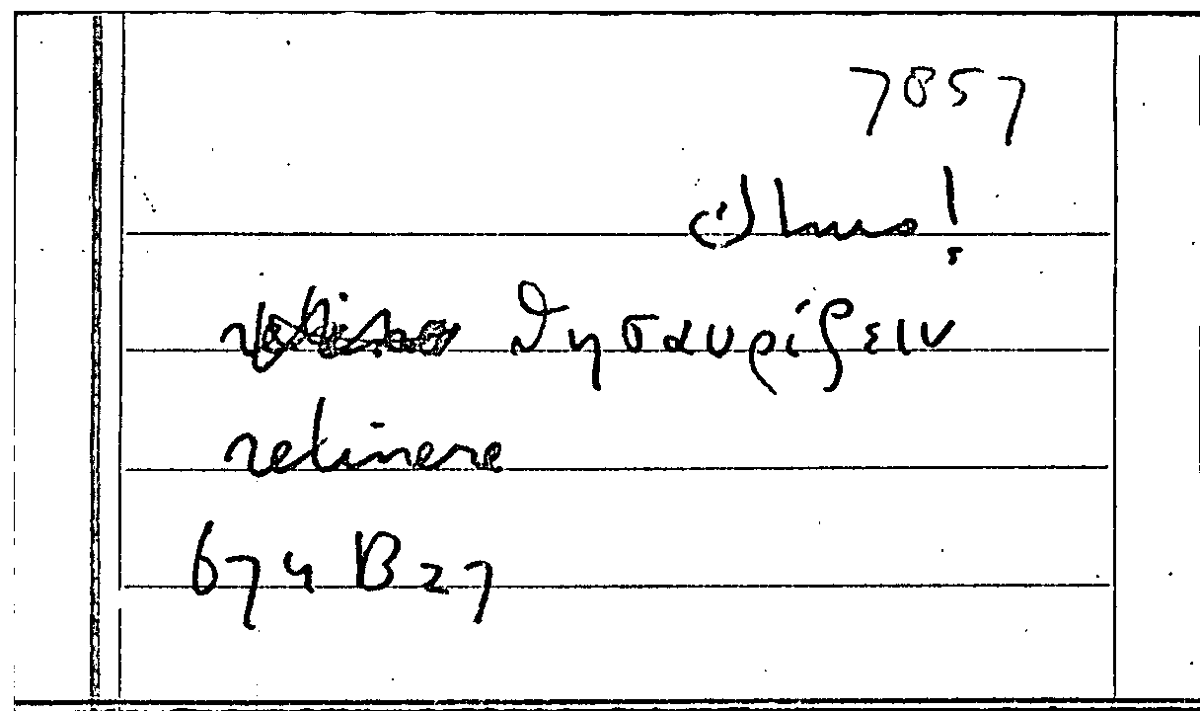 7857
θησαυρίζειν
retinere
674 B27